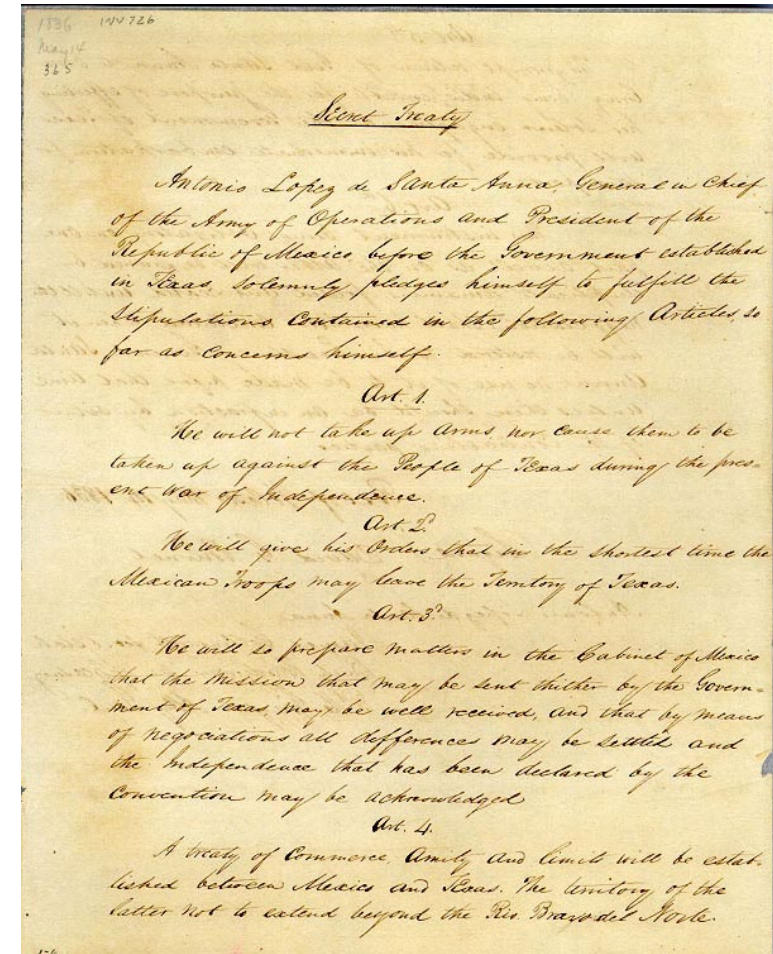 1836 INV 726
May 14
365
Secret Treaty
Antonio Lopez de Santa Anna, General in Chief
of the Army of Operations and President of the
Republic of Mexico, before the Government established
in Texas, solemnly pledges himself to fulfill the
Stipulations Contained in the following Articles, so
far as concerns himself.
Art. 1.
He will not take up arms, nor cause them to be
taken up against the People of Texas during the pres-
ent War of Independence.
Art. 2d.
He will give his Orders that in the shortest time the
Mexican Troops may leave the Territory of Texas.
Art. 3d.
He will so prepare matters in the Cabinet of Mexico
that the Mission that may be sent thither by the Govern-
ment of Texas, may be well received, and that by means
of negociations all differences may be settled and
the Independence that has been declared by the
Convention may be acknowledged
Art. 4.
A treaty of Commerce, Amity and limits will be estab-
lished between Mexico and Texas. The territory of the
latter not to extend beyond the Rio. Bravo del Norte.